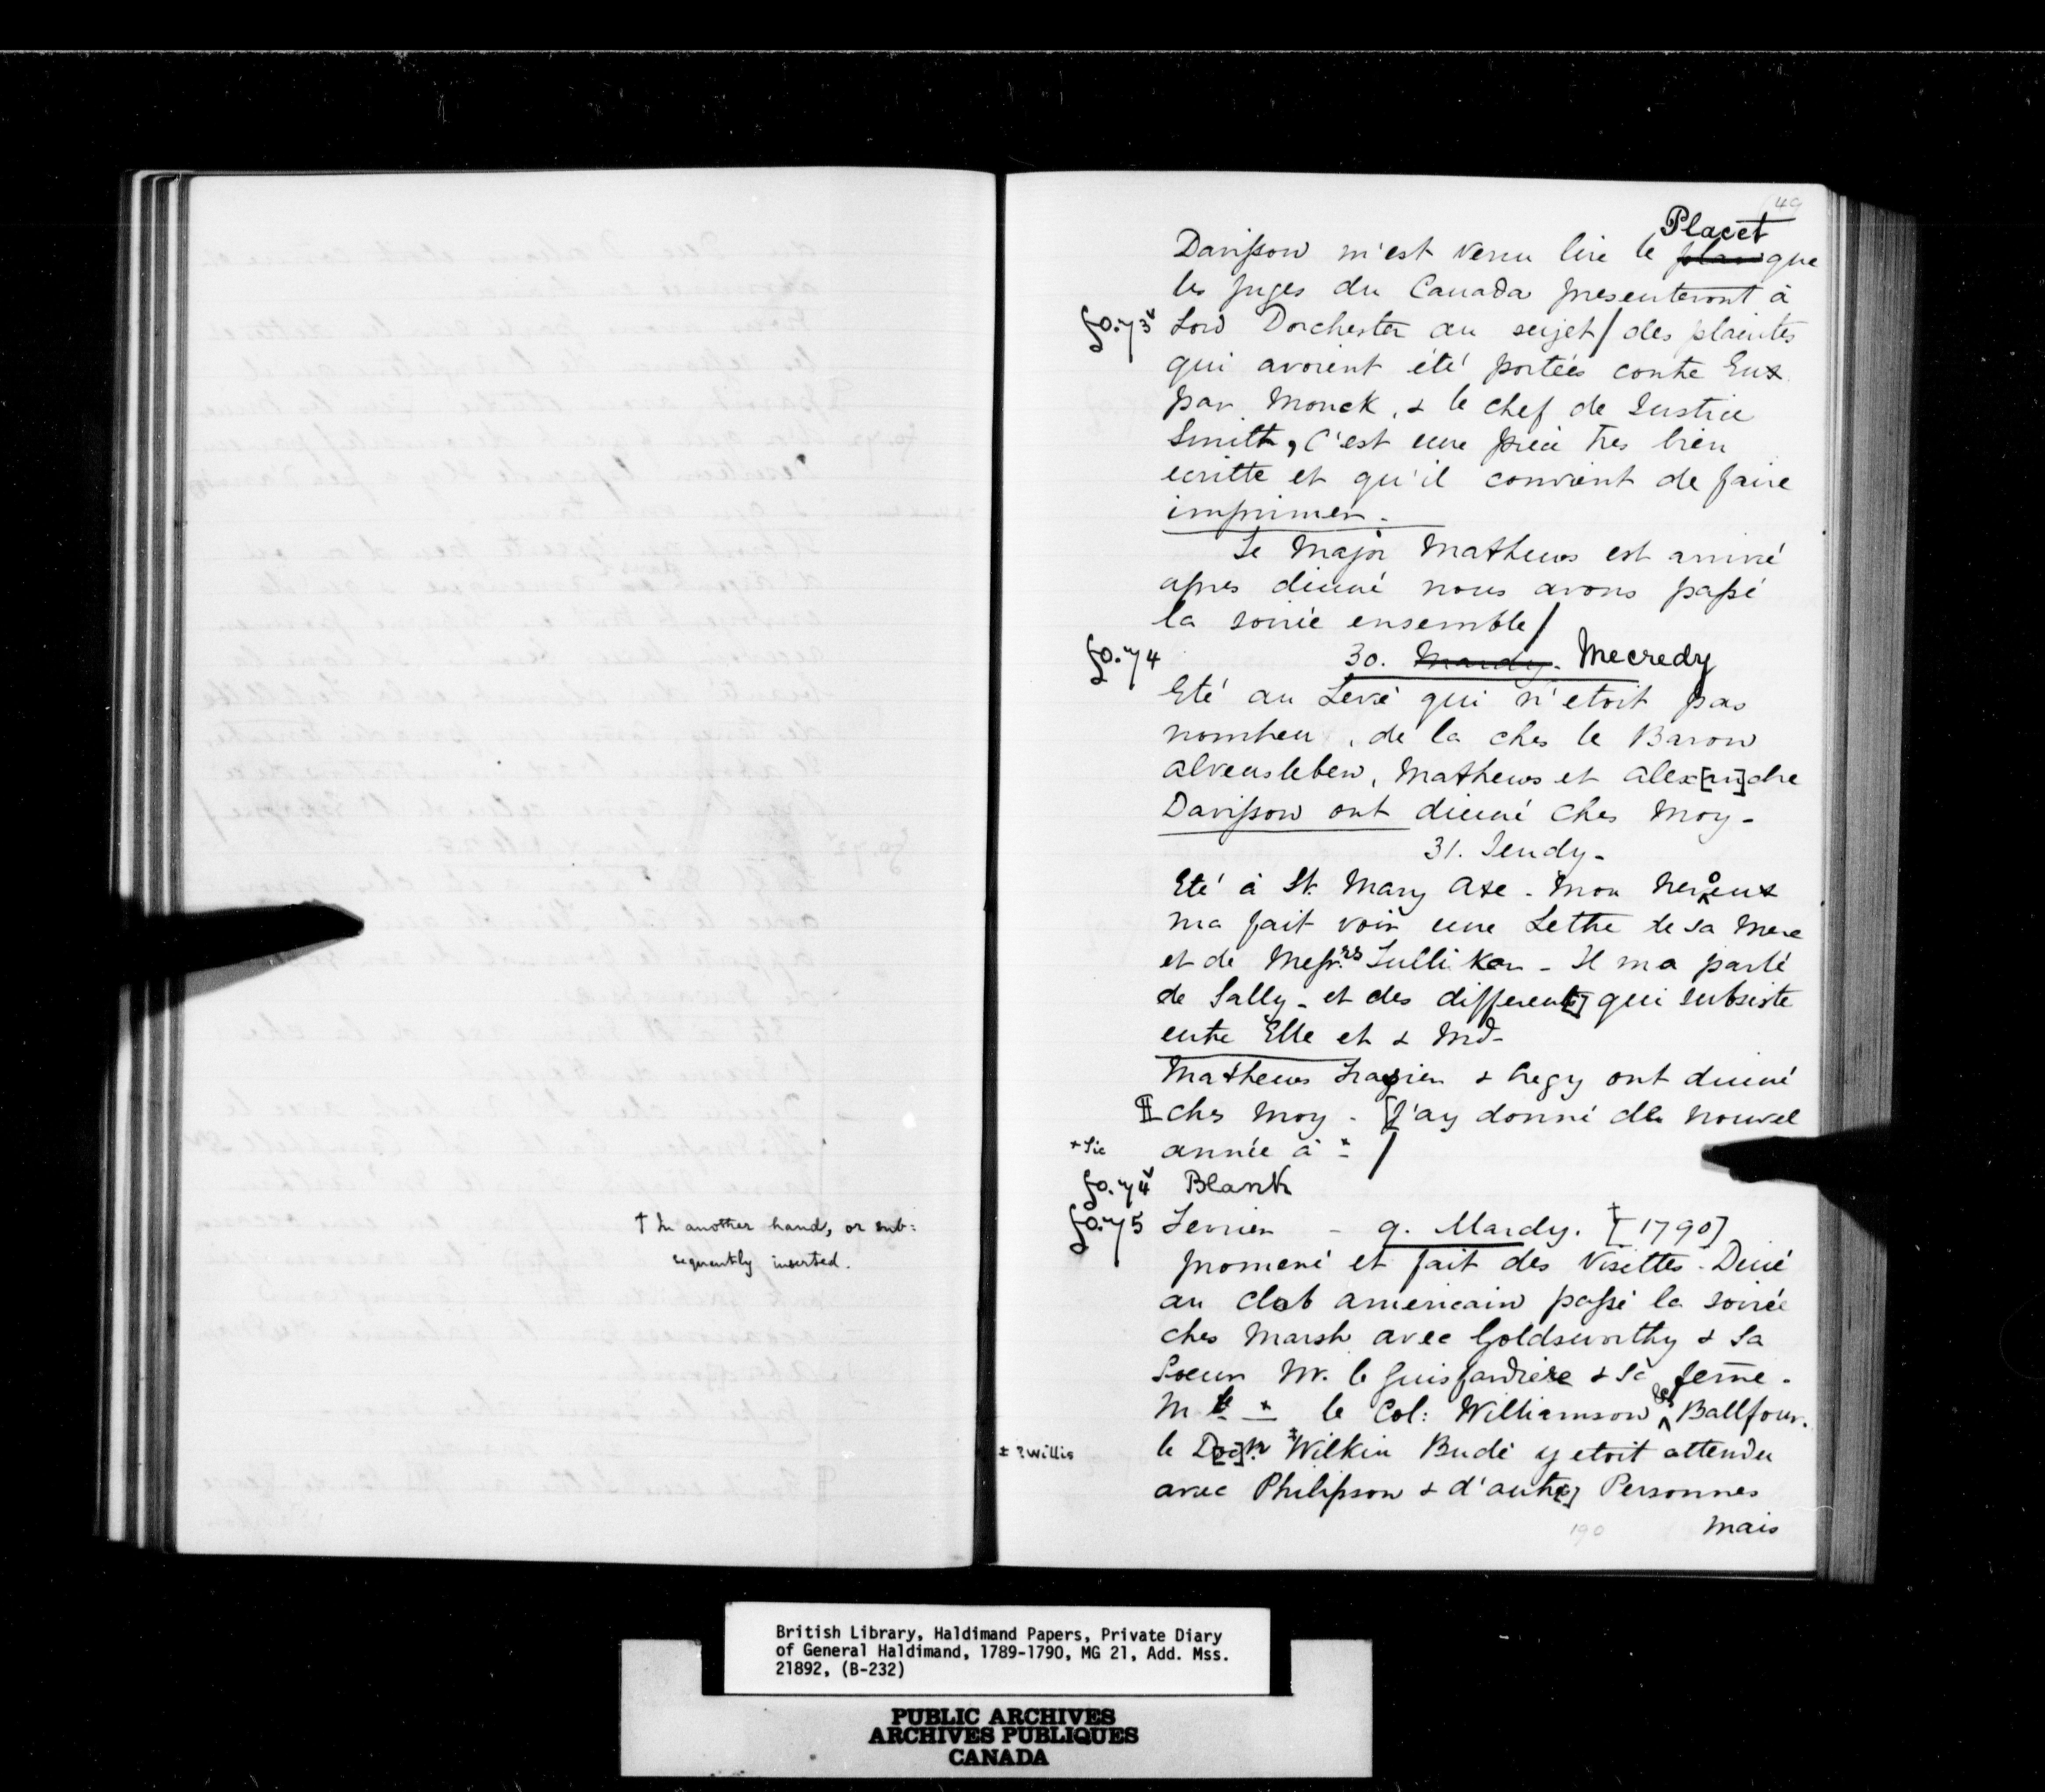 49
Placet
Davisson m'est venu lire le plan que
les juges du Canada presenteront à
fo. 73v Lord Dorchester au seujet / des plaintes
qui avoient été portées contre Eux
par Monck, & le chef de Justice
Smith, C'est une piéce Tres bien
ecritte et qu'il convient de faire
imprimer -
Le Major Mathews est arrivé
apres dinné nous avons passé
la soirée ensemble /
fo. 74 30. Mardy. Mecredy
Eté au Levé qui n'etoit pas
nombeu, de la ches le Baron
Alvensleben, Mathews et Alex[an]dre
Davisson ont dinné Ches Moy -
31. Jeudy -
Eté à St. Mary Axe - Mon Neveux
ma fait voir une Lettre de sa Mere
et de Messrs Zulliken - Il ma parlé
de Sally - et des different[s] qui subsiste
entre Elle et & Md-
Mathews Frasier & Gregy ont dinné
¶ ches Moy - [J'ay donné de la nouvel
+ Sic année à + /
fo. 74v Blank
fo. 75 Fevrier - 9. Mardy. ‡ [1790]
† In another hand, or sub:
sequently inserted.
promené et fait des Visettes - Diné
au Club americain passé la soirée
ches Marsh avec Goldsworthy & Sa
Soeur Mr. le Guisfardiere & Sa feme -
M le + le Col: Williamson & Ballfour.
± ? Willis le Do[c]r. ‡ Wilkin Budé y etoit attendu
avec Philipson & d'autre[s] Personnes
190 mais
British Library, Haldimand Papers, Private Diary
of General Haldimand, 1789-1790, MG 21, Add. Mss.
21892, (B-232)
PUBLIC ARCHIVES
ARCHIVES PUBLIQUES
CANADA